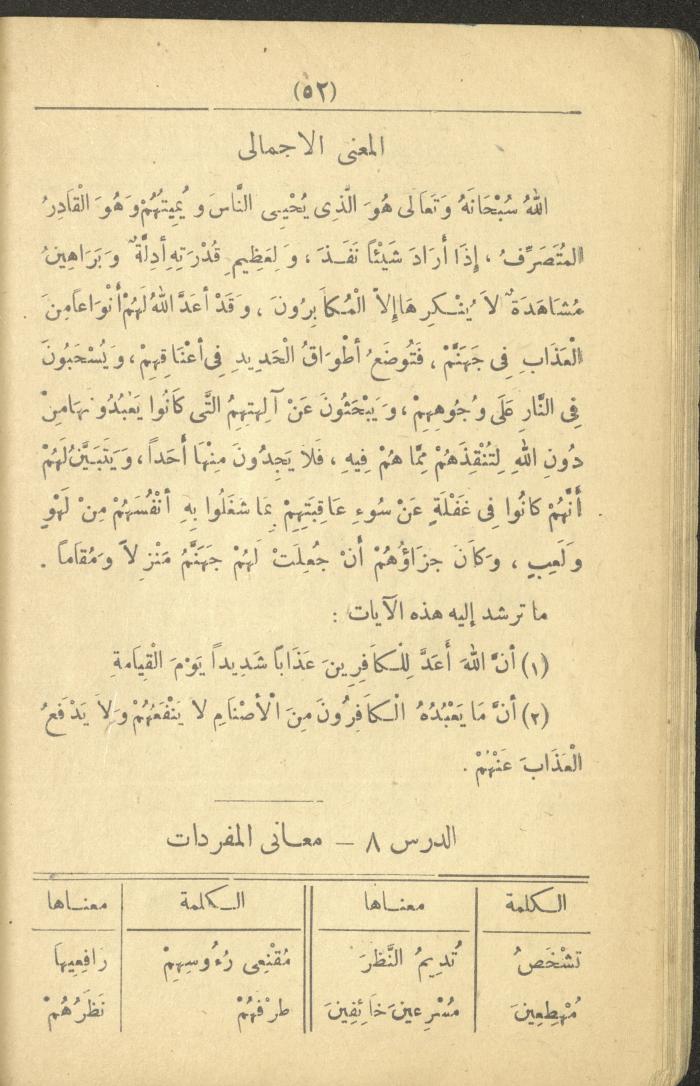 (٥٢)
المعنى الاجمالى
اللهُ سُبْحَانَهُ وَتَعَالَى هُوَ الَّذِى يُحْيِى النَّاسَ وَيُمِيتُهُمْ وَهُوَ الْقَادِرُ
المُتَصَرِّفُ ، إِذَا أَرَادَ شَيْئاً نَفَذَ ، وَلِعَظِيمِ قُدْرَتِهِ أَدِلَّةٌ وَبَرَاهِينُ
مُشَاهَدَةٌ لاَ يُنْكِرِهَا إِلاَّ الْمُكَابِرُونَ ، وَقَدْ أَعَدَّ اللهُ لَهُمْ أَنْوَاعاً مِنَ
الْعَذَابِ فِى جَهَنَّمَ ، فَتُوضَعُ أَطْوَاقُ الْحَدِيدِ فِى أَعْنَاقِهِمْ ، وَيُسْحَبُونَ
فِى النَّارِ عَلَى وُجُوهِهِمْ ، وَيَبْحَثُونَ عَنْ آلِهَتِهِمُ الَّتِى كَانُوا يَعْبُدُونَهَا مِنْ
دُونِ اللهِ لِتُنْقِذَهُمْ مِمَّا هُمْ فِيهِ ، فَلاَ يَجِدُونَ مِنْهَا أَحَداً ، وَيَتَبَيَّنُ لَهُمْ
أَنَّهُمْ كَانُوا فِى غَفْلَةٍ عَنْ سُوءِ عَاقِبَتِهِمْ بِمَا شَغَلُوا بِهِ أَنْفُسَهُمْ مِنْ لَهْوٍ
وَلَعِبٍ ، وَكَانَ جَزَاؤُهُمْ أَنْ جُعِلَتْ لَهُمْ جَهَنَّمُ مَنْزِلاً وَمُقَاماً .
ما ترشد إليه هذه الآيات :
(١) أَنَّ اللهَ أَعَدَّ لِلْكَافِرِينَ عَذَاباً شَدِيداً يَوْمَ الْقِيَامَةِ
(٢) أَنَّ مَا يَعْبُدُهُ الْكَافِرُونَ مِنَ الْأَصْنَامِ لا يَنْفَعُهُمْ وَلاَ يَدْفَعُ
الْعَذَابَ عَنْهُمْ .
الدرس ٨ – معانى المفردات
الكلمة معناها الكلمة معناها
تَشْخَصُ تُدِيمُ النَّظَرَ مُقْنِعِى رُءُوسِهِمْ رَافِعِيهَا
مُهْطِعِينَ مُسْرِعِينَ خَائِفِينَ طَرْفُهُمْ نَظَرُهُمْ